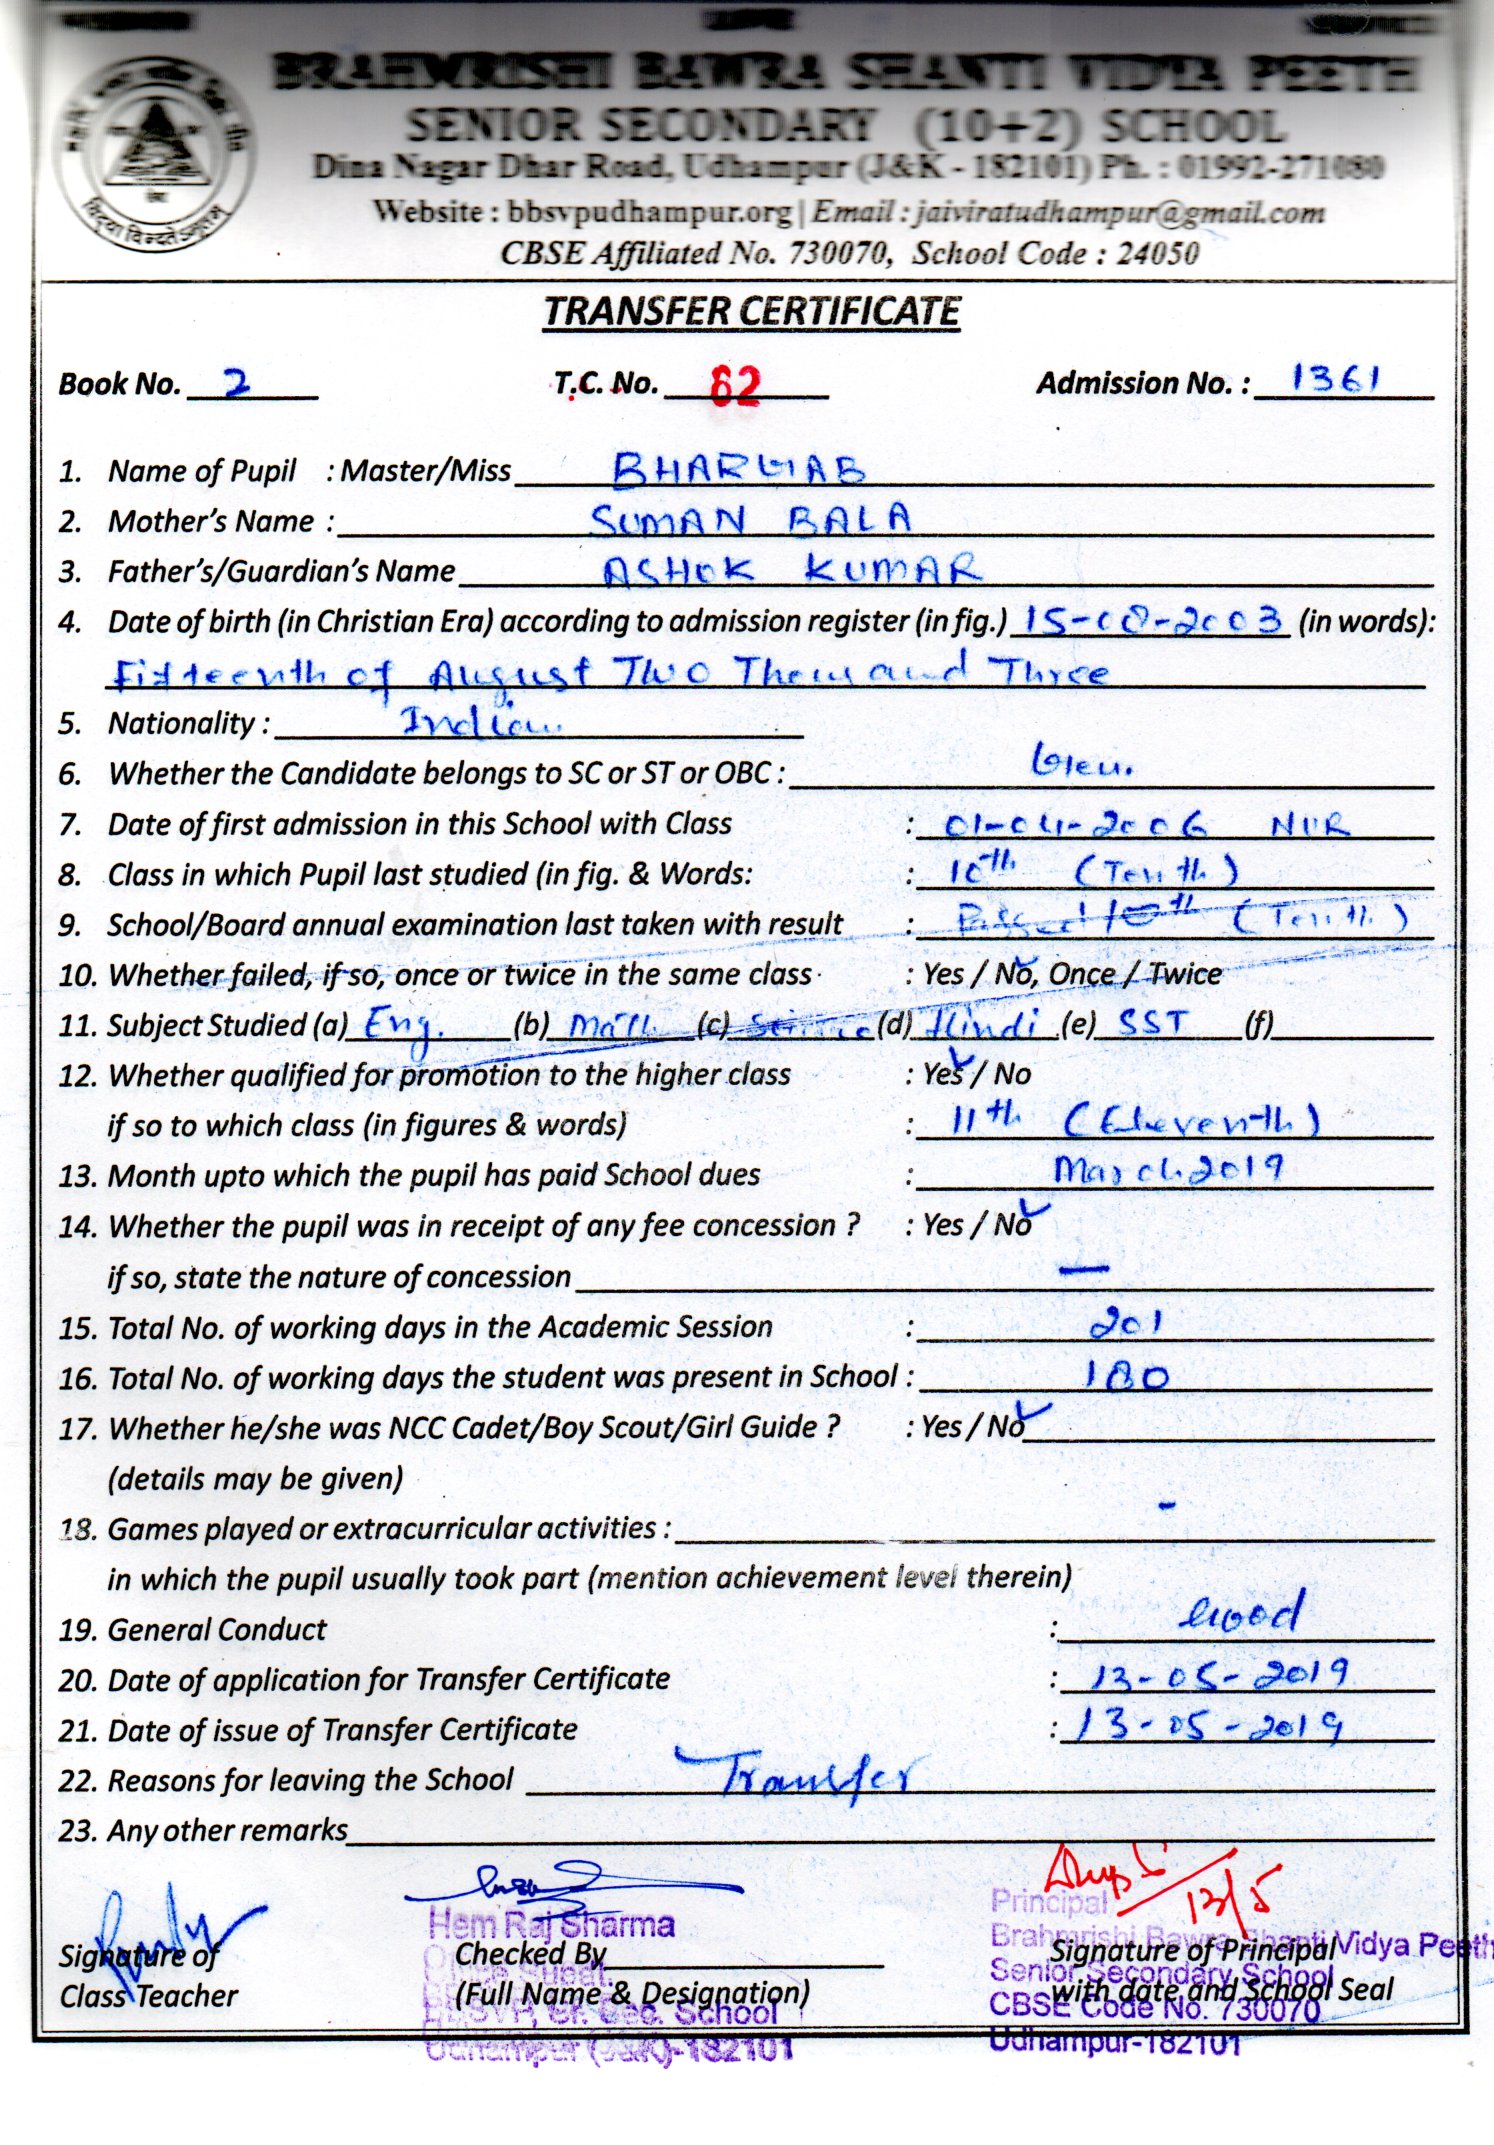 BRAHMRISHI BAWRA SHANTI VIDYA PEETH
SENIOR SECONDARY (10+2) SCHOOL
Dina Nagar Dhar Road, Udhampur (J&K - 182101) Ph. : 01992-271080
Website : bbsvpudhampur.org | Email : jaiviratudhampur@gmail.com
CBSE Affiliated No. 730070, School Code : 24050
TRANSFER CERTIFICATE
Book No. 2 T.C. No. 62 Admission No. : 1361
1. Name of Pupil : Master/Miss BHARGAB
2. Mother's Name : SUMAN BALA
3. Father's/Guardian's Name ASHOK KUMAR
4. Date of birth (in Christian Era) according to admission register (in fig.) 15-08-2003 (in words):
Fifteenth of August Two Thousand Three
5. Nationality : Indian
6. Whether the Candidate belongs to SC or ST or OBC : Gen.
7. Date of first admission in this School with Class : 01-04-2006 NUR
8. Class in which Pupil last studied (in fig. & Words: : 10th (Tenth)
9. School/Board annual examination last taken with result : Passed 10th (Tenth)
10. Whether failed, if so, once or twice in the same class : Yes / No, Once / Twice
11. Subject Studied (a) Eng. (b) Math (c) Science (d) Hindi (e) SST (f)
12. Whether qualified for promotion to the higher class : Yes / No
if so to which class (in figures & words) : 11th (Eleventh)
13. Month upto which the pupil has paid School dues : March 2019
14. Whether the pupil was in receipt of any fee concession ? : Yes / No
if so, state the nature of concession —
15. Total No. of working days in the Academic Session : 201
16. Total No. of working days the student was present in School : 180
17. Whether he/she was NCC Cadet/Boy Scout/Girl Guide ? : Yes / No
(details may be given)
18. Games played or extracurricular activities : -
in which the pupil usually took part (mention achievement level therein)
19. General Conduct : Good
20. Date of application for Transfer Certificate : 13-05-2019
21. Date of issue of Transfer Certificate : 13-05-2019
22. Reasons for leaving the School Transfer
23. Any other remarks
13/5
Principal
Hem Raj Sharma
Brahmrishi Bawra Shanti Vidya Peeth
Signature of Checked By Signature of Principal
Senior Secondary School
Class Teacher (Full Name & Designation) with date and School Seal
BBSVP, Sr. Sec. School CBSE Code No. 730070
Udhampur (J&K)-182101 Udhampur-182101